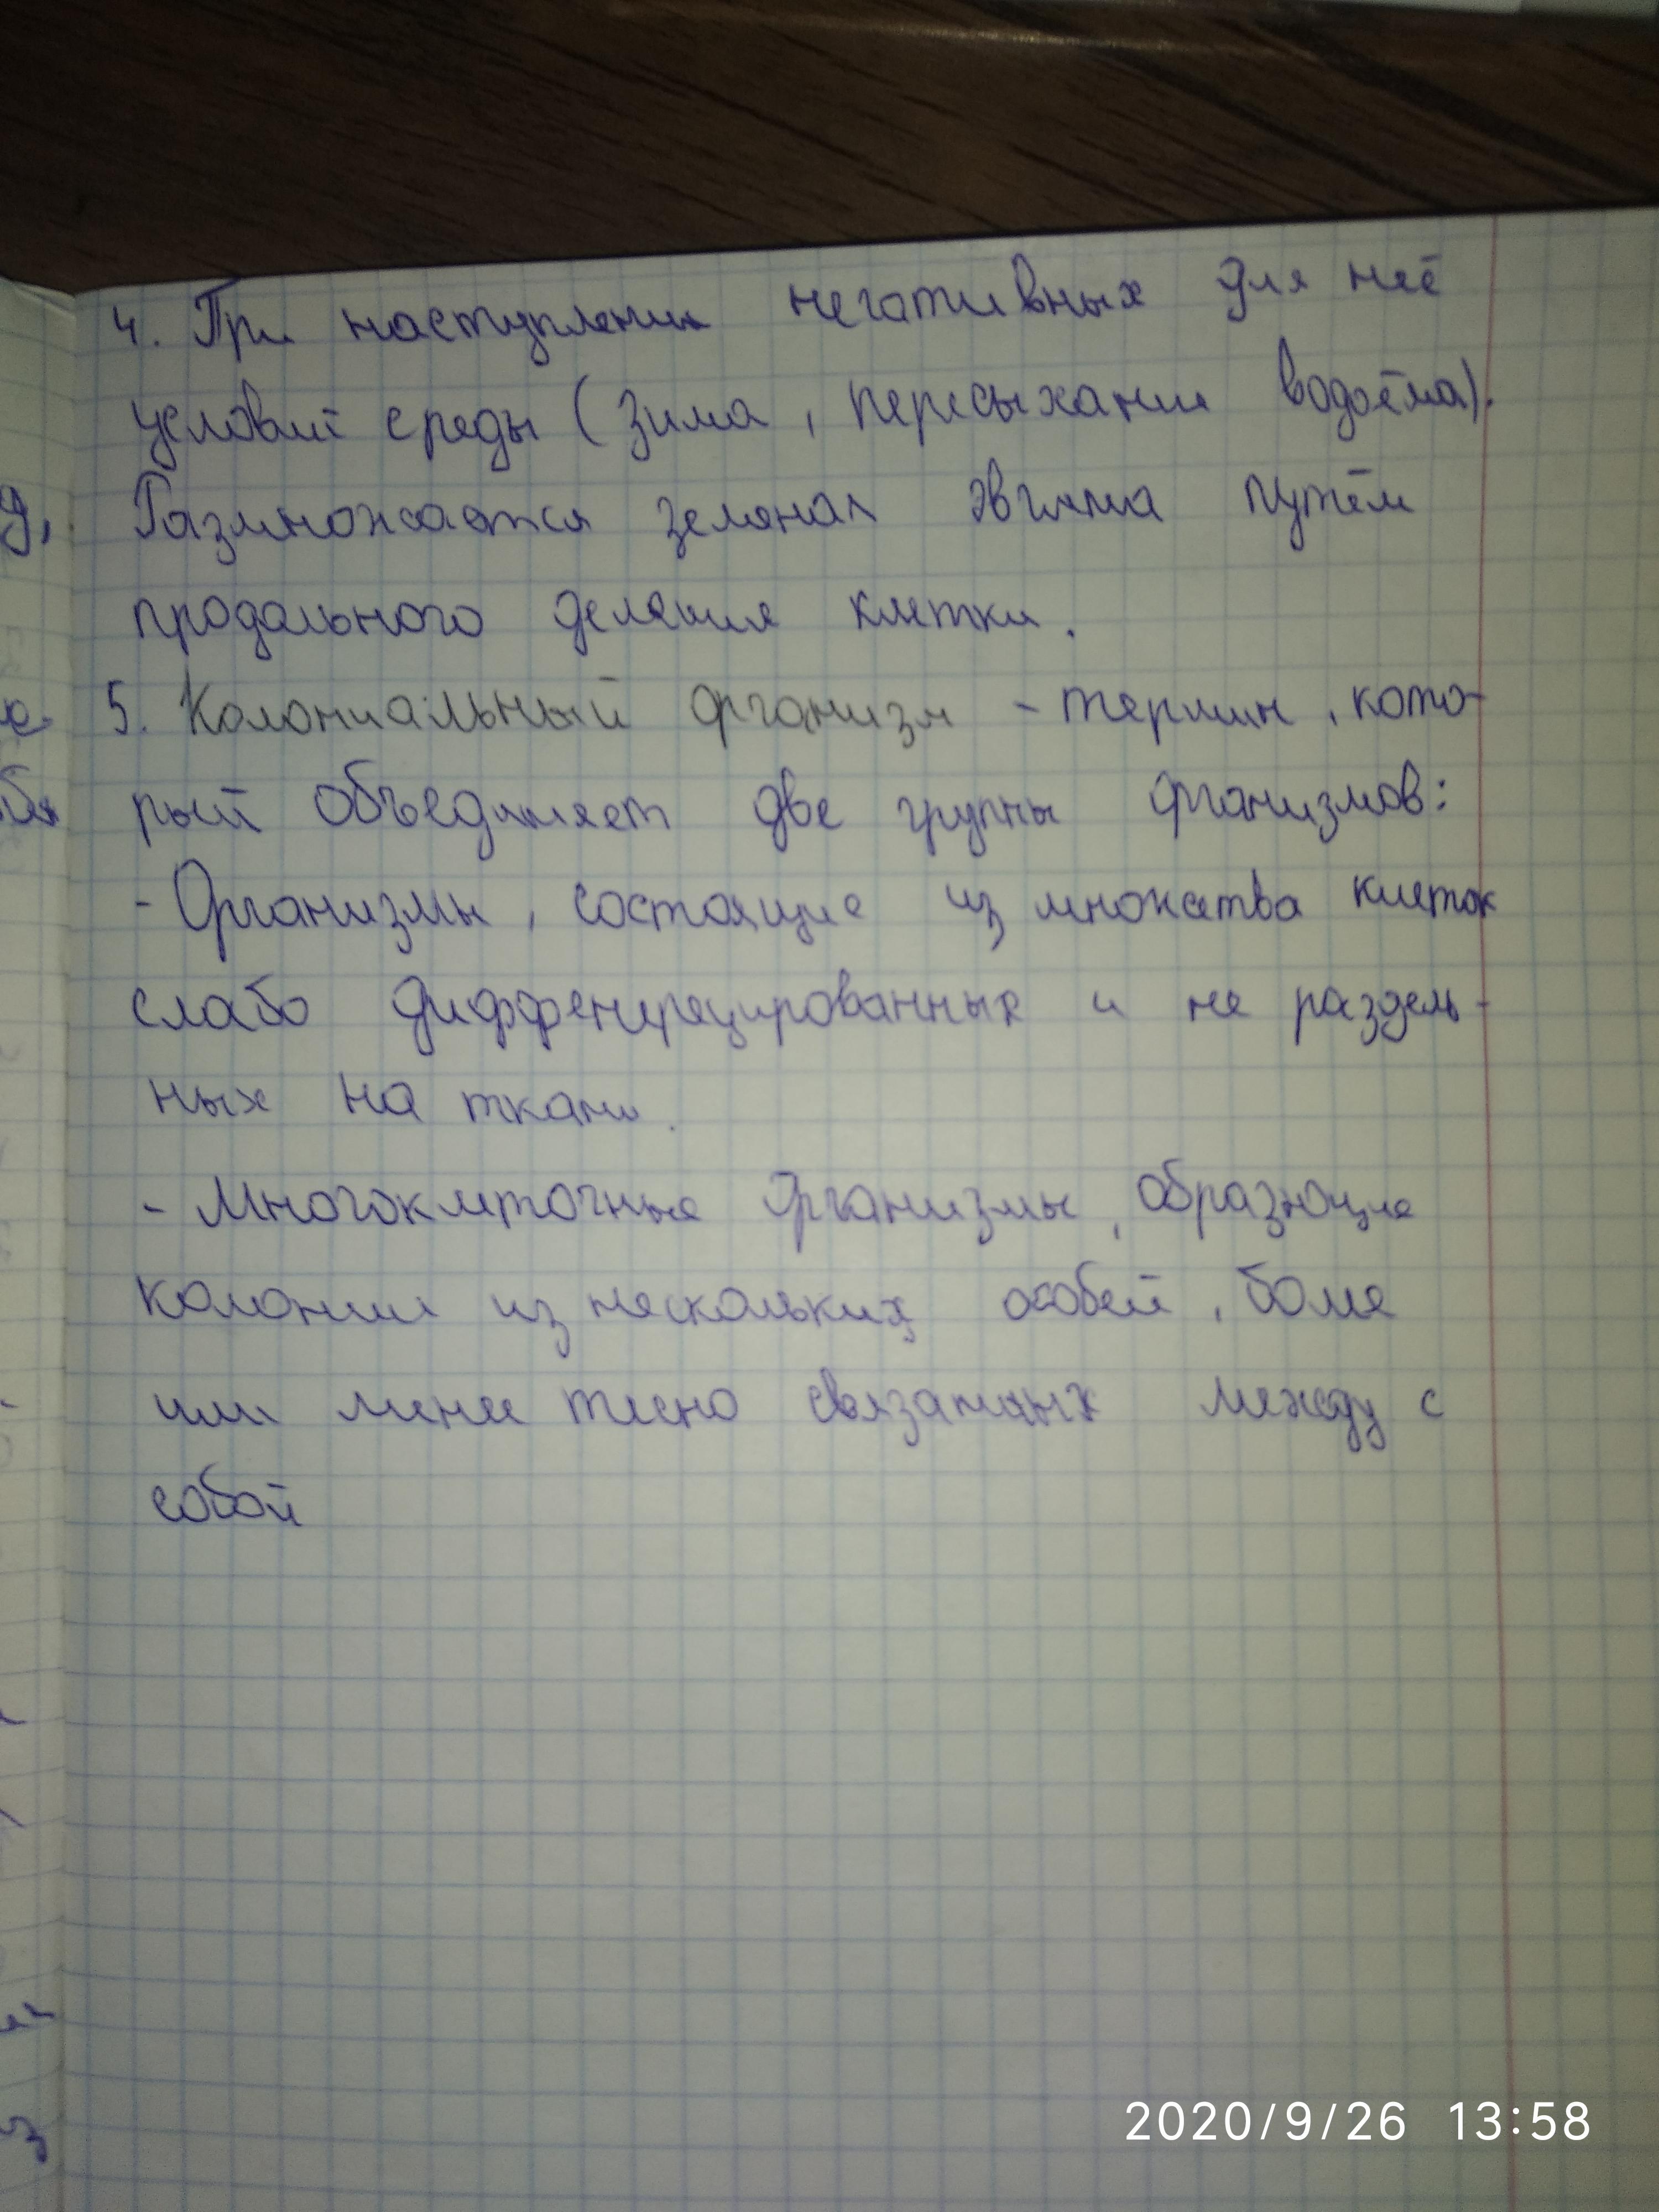 4. При наступлении негативных для неё
условий среды (зима, пересыхании водоёма).
Размножается зеленая эвглена путём
продольного деления клетки.
5. Колониальный организм - термин, кото-
рый объединяет две группы организмов:
- Организмы, состоящие из множества клеток
слабо дифференцрецированных и не раздель-
ных на ткани.
- Многоклеточные организмы, образующие
колонии из нескольких особей, более
или менее тесно связанных между с
собой
2020/9/26 13:58